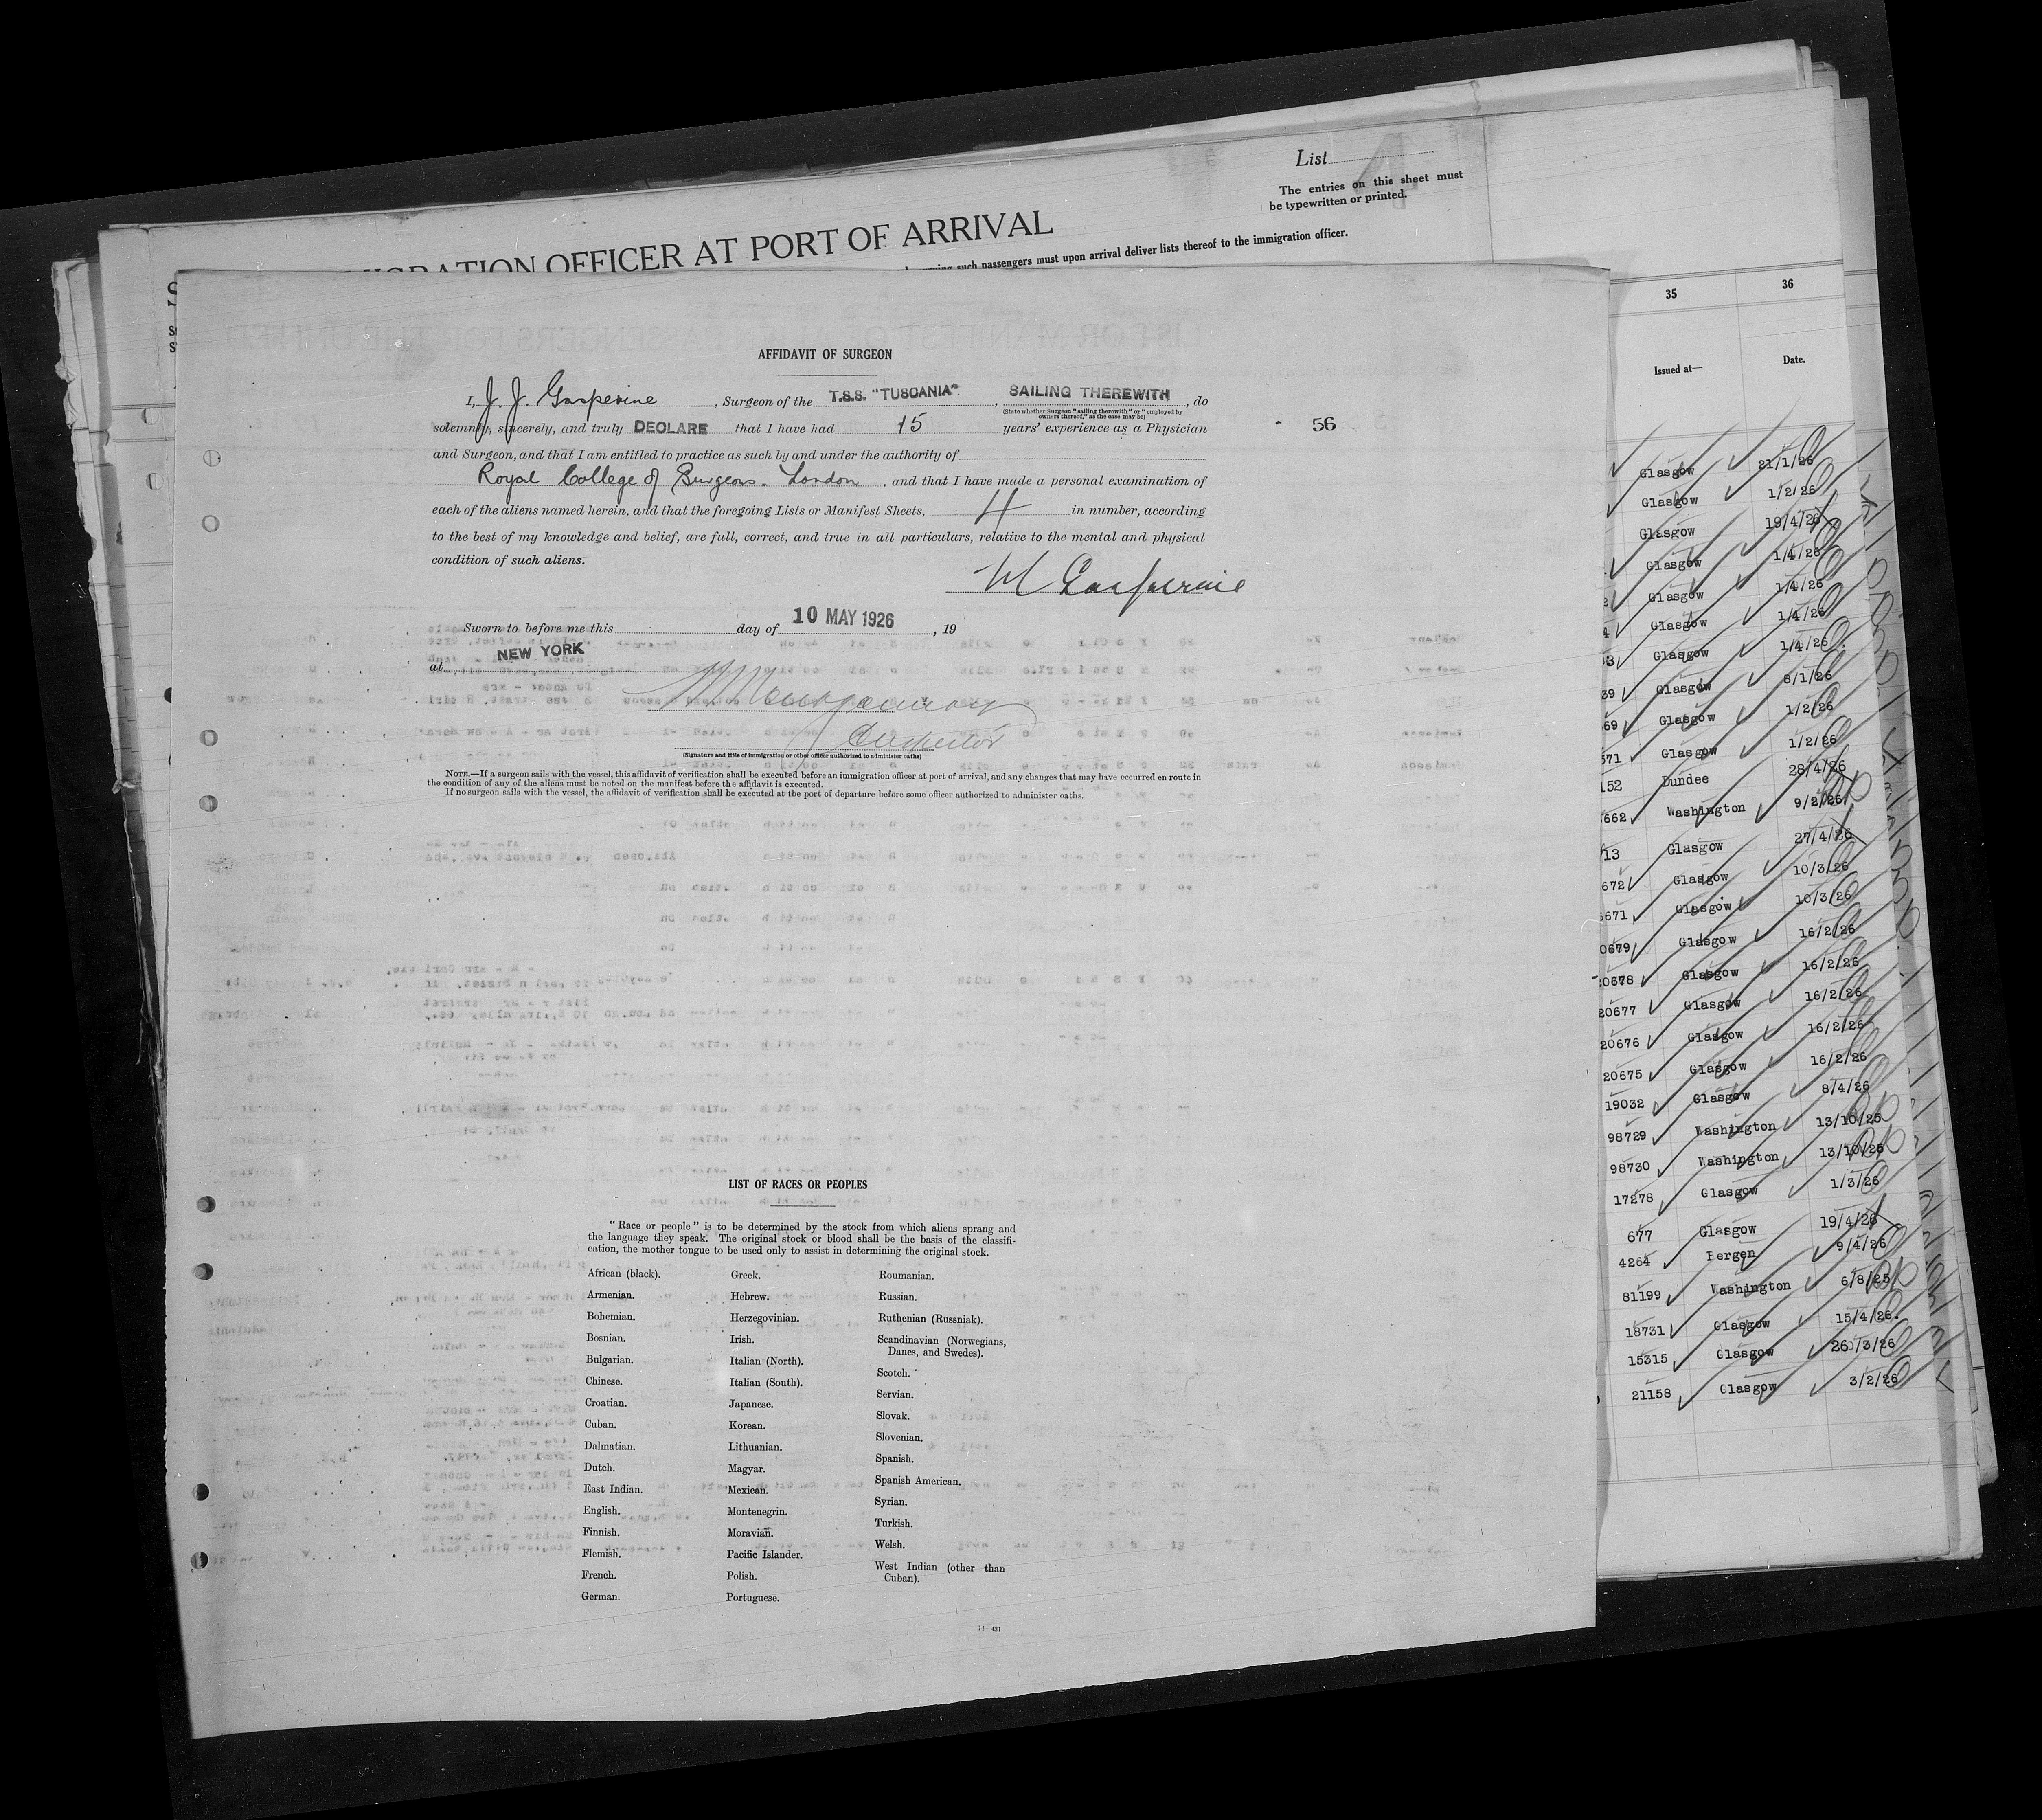 List
The entries on this sheet must
be typewritten or printed.
OFFICER AT PORT OF ARRIVAL
such passengers must upon arrival deliver lists thereof to the immigration officer.
AFFIDAVIT OF SURGEON
I, J. J. Gasperine, Surgeon of the T.S.S. "TUSCANIA", SAILING THEREWITH, do
(State whether Surgeon "sailing therewith" or "employed by
owners thereof," as the case may be)
solemnly, sincerely, and truly DECLARE that I have had 15 years' experience as a Physician
56
and Surgeon, and that I am entitled to practice as such by and under the authority of
Royal College of Surgeons. London, and that I have made a personal examination of
each of the aliens named herein, and that the foregoing Lists or Manifest Sheets, 4 in number, according
to the best of my knowledge and belief, are full, correct, and true in all particulars, relative to the mental and physical
condition of such aliens.
Gasperine
Sworn to before me this day of 10 MAY 1926, 19
at NEW YORK
Inspector
(Signature and title of immigration or other officer authorized to administer oaths)
NOTE.—If a surgeon sails with the vessel, this affidavit of verification shall be executed before an immigration officer at port of arrival, and any changes that may have occurred en route in
the condition of any of the aliens must be noted on the manifest before the affidavit is executed.
If no surgeon sails with the vessel, the affidavit of verification shall be executed at the port of departure before some officer authorized to administer oaths.
LIST OF RACES OR PEOPLES
"Race or people" is to be determined by the stock from which aliens sprang and
the language they speak. The original stock or blood shall be the basis of the classifi-
cation, the mother tongue to be used only to assist in determining the original stock.
African (black).
Armenian.
Bohemian.
Bosnian.
Bulgarian.
Chinese.
Croatian.
Cuban.
Dalmatian.
Dutch.
East Indian.
English.
Finnish.
Flemish.
French.
German.
Greek.
Hebrew.
Herzegovinian.
Irish.
Italian (North).
Italian (South).
Japanese.
Korean.
Lithuanian.
Magyar.
Mexican.
Montenegrin.
Moravian.
Pacific Islander.
Polish.
Portuguese.
Roumanian.
Russian.
Ruthenian (Russniak).
Scandinavian (Norwegians,
Danes, and Swedes).
Scotch.
Servian.
Slovak.
Slovenian.
Spanish.
Spanish American.
Syrian.
Turkish.
Welsh.
West Indian (other than
Cuban).
14—431
35 36
Issued at— Date.
Glasgow 21/1/26
Glasgow 1/2/26
Glasgow 19/4/26
Glasgow 1/4/26
Glasgow 1/4/26
Glasgow 1/4/26
Glasgow 1/4/26
Glasgow 8/1/26
69 Glasgow 1/2/26
571 Glasgow 1/2/26
152 Dundee 28/4/26
662 Washington 9/2/26
13 Glasgow 27/4/26
672 Glasgow 10/3/26
671 Glasgow 10/3/26
0679 Glasgow 16/2/26
20678 Glasgow 16/2/26
20677 Glasgow 16/2/26
20676 Glasgow 16/2/26
20675 Glasgow 16/2/26
19032 Glasgow 8/4/26
98729 Washington 13/10/25
98730 Washington 13/10/25
17278 Glasgow 1/3/26
677 Glasgow 19/4/26
4264 Bergen 9/4/26
81199 Washington 6/8/25
18731 Glasgow 15/4/26.
15315 Glasgow 26/3/26
21158 Glasgow 3/2/26